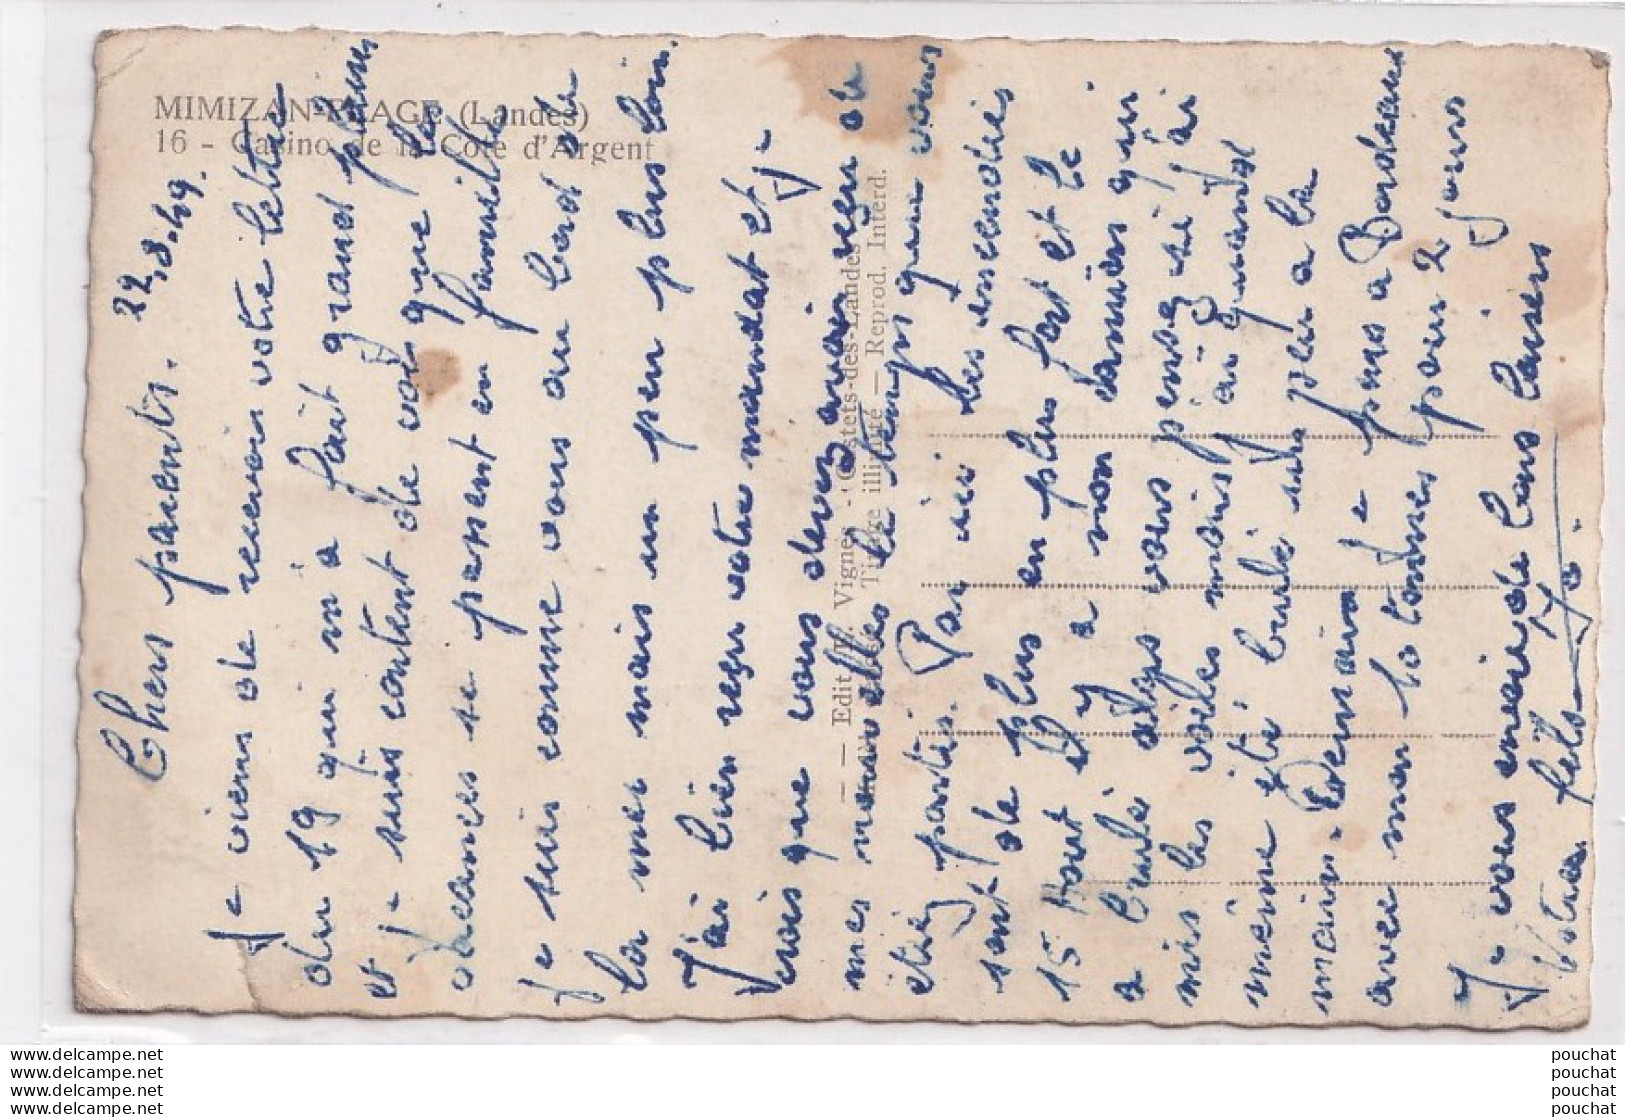 MIMIZAN-PLAGE (Landes)
16 - Casino de la Côte d'Argent
— — Edit. M. Vignes - Castets-des-Landes
Tirage illimité — Reprod. Interd.
22.8.49.
Chers parents.
Je viens de recevoir votre lettre
du 19 qui m'a fait grand plaisir
et je suis content de voir que les
vacances se passent en famille
je suis comme vous au bord de
la mer mais un peu plus loin.
J'ai bien reçu votre mandat et je
crois que vous devez avoir reçu de
mes nouvelles le temps que vous
étiez partis. Par ici les incendies
sont de plus en plus fort et le
15 Aout il y a mon camion qui
a brulé alors vous pensez si j'ai
mis les voiles mais j'ai quand
même été brulé un peu a la
main. Demain je pars a Bordeaux
avec mon 10 tonnes pour 2 jours
Je vous envoie de bons baisers
Votre fils Jo.
www.delcampe.net
www.delcampe.net
www.delcampe.net
www.delcampe.net
pouchat
pouchat
pouchat
pouchat